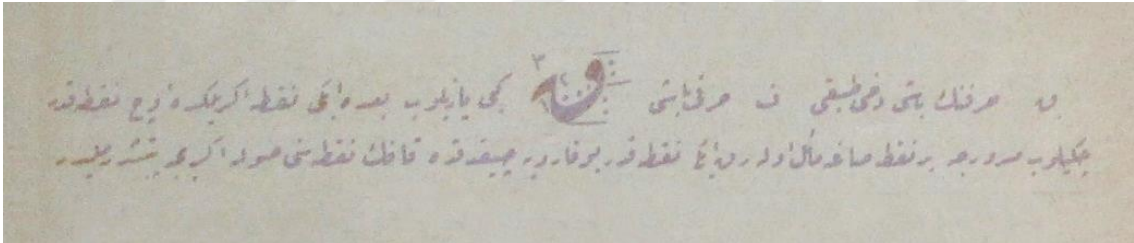 ق حرفنك باشى دخى طبقى ف حرفى باشى كبى يازيلوب بعده ايكى نقطه اكريلكده اوچ نقطه قدر
چكيلوب بر نقطه صاغه مائل اوله رق ايكى نقطه قدر يوقارويه چيقدقده قافك نقطه سنى صوله اكرى